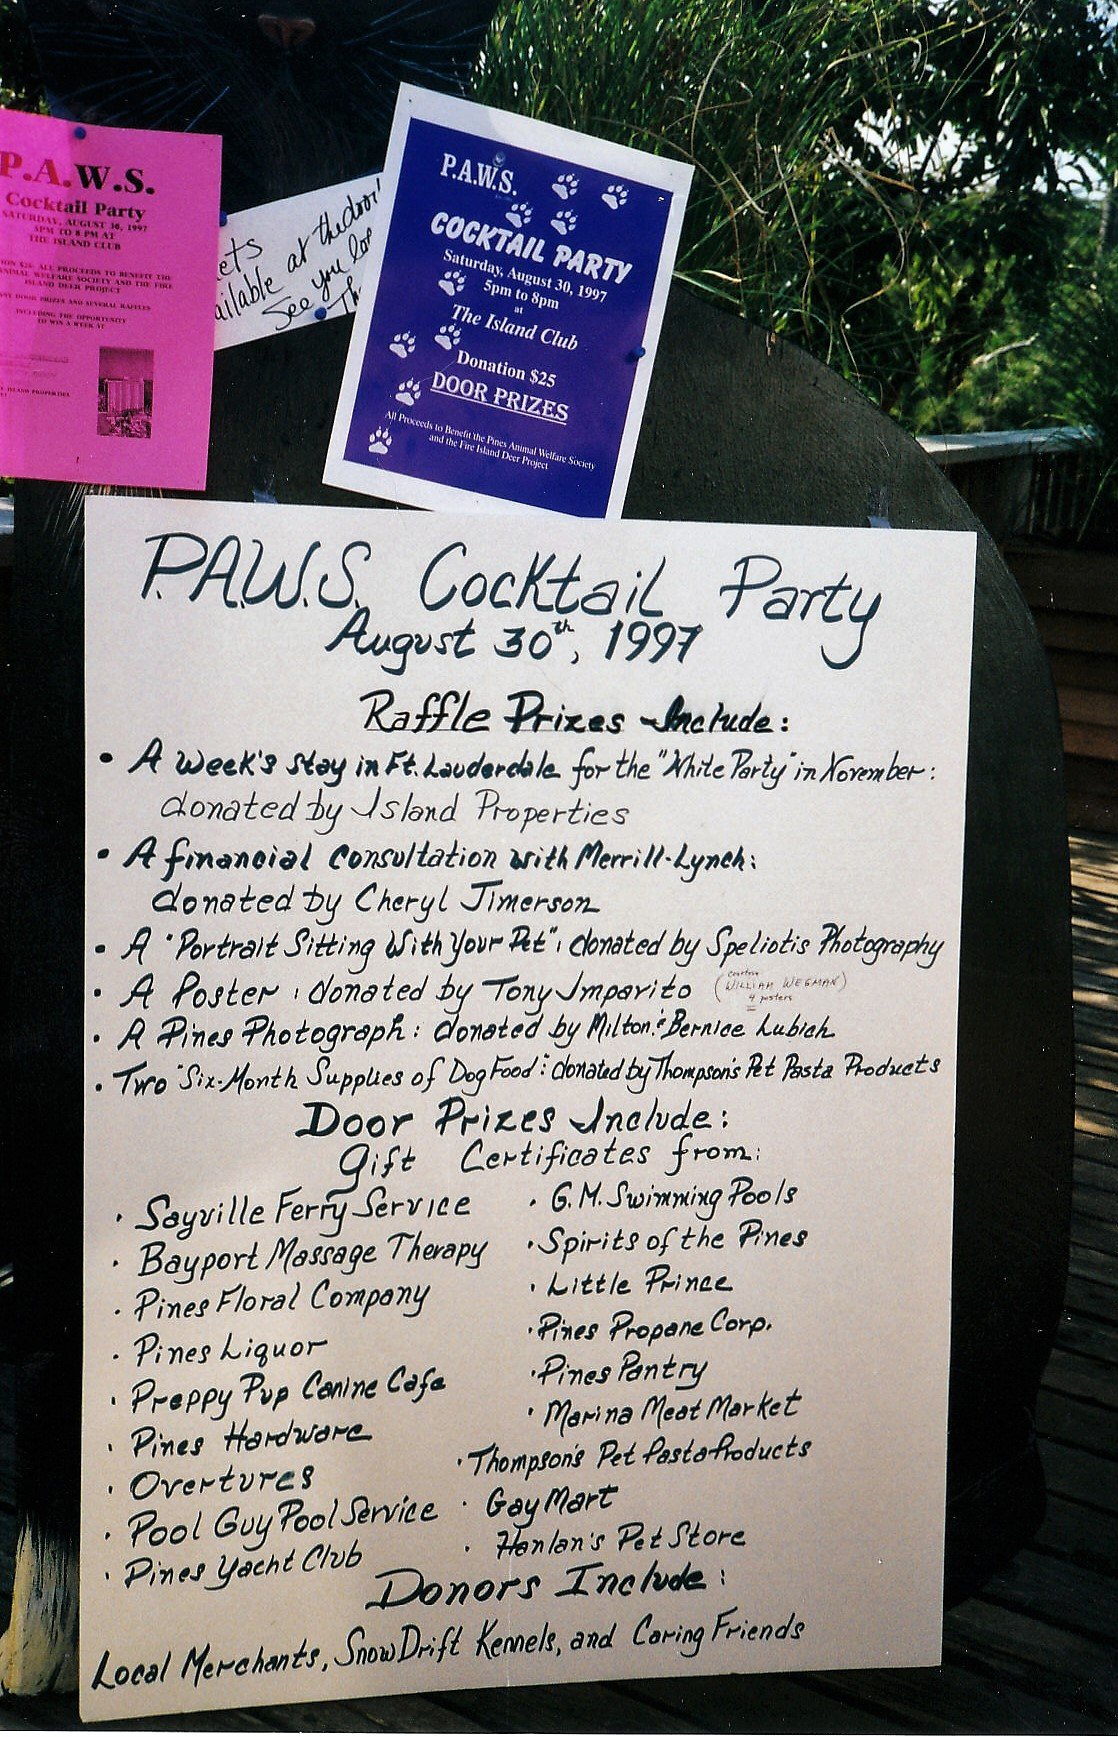 P.A.W.S.
Cocktail Party
SATURDAY, AUGUST 30, 1997
5PM TO 8 PM AT
THE ISLAND CLUB
ALL PROCEEDS TO BENEFIT THE
ANIMAL WELFARE SOCIETY AND THE FIRE
ISLAND DEER PROJECT
DOOR PRIZES AND SEVERAL RAFFLES
INCLUDING THE OPPORTUNITY
TO WIN A WEEK AT
ISLAND PROPERTIES
at the door!
See you
P.A.W.S.
COCKTAIL PARTY
Saturday, August 30, 1997
5pm to 8pm
at
The Island Club
Donation $25
DOOR PRIZES
All Proceeds to Benefit the Pines Animal Welfare Society
and the Fire Island Deer Project
P.A.W.S. Cocktail Party
August 30th, 1997
Raffle Prizes Include:
• A Week's stay in Ft. Lauderdale for the "White Party" in November:
donated by Island Properties
• A financial consultation with Merrill-Lynch:
donated by Cheryl Jimerson
• A "Portrait Sitting With Your Pet": donated by Speliotis Photography
• A Poster: donated by Tony Imparito (courtesy WILLIAM WEGMAN) 4 posters
• A Pines Photograph: donated by Milton & Bernice Lubich
• Two "Six-Month Supplies of Dog Food": donated by Thompson's Pet Pasta Products
Door Prizes Include:
Gift Certificates from:
• Sayville Ferry Service
• Bayport Massage Therapy
• Pines Floral Company
• Pines Liquor
• Preppy Pup Canine Cafe
• Pines Hardware
• Overtures
• Pool Guy Pool Service
• Pines Yacht Club
• G.M. Swimming Pools
• Spirits of the Pines
• Little Prince
• Pines Propane Corp.
• Pines Pantry
• Marina Meat Market
• Thompson's Pet Pasta Products
• Gay Mart
• Hanlan's Pet Store
Donors Include:
Local Merchants, SnowDrift Kennels, and Caring Friends